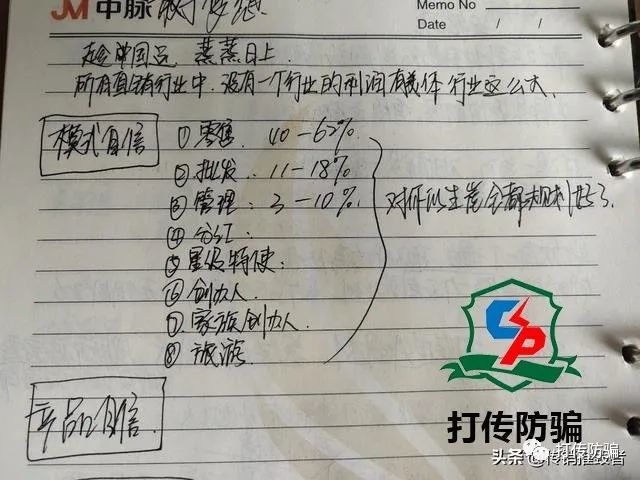 JM 中脉
Memo No
Date / /
蒸蒸日上
所有直销行业中.没有一个行业的利润有我体行业这么大.
模式自信
① 零售. 40-62%
② 批发. 11-18%
③ 管理. 3-10%.
④ 分红.
⑤ 星级特使.
⑥ 创办人.
⑦ 家族创办人.
⑧ 旅游
对你的生涯全都规划好了.
产品自信.
CP
打传防骗
打传防骗
头条@传销捶毁者